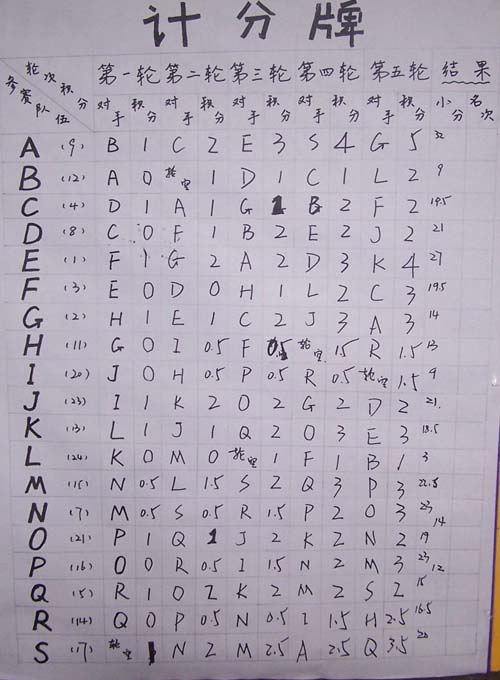 计分牌
轮次 积分 参赛队伍 第一轮 第二轮 第三轮 第四轮 第五轮 结果
对手 积分 对手 积分 对手 积分 对手 积分 对手 积分 小分 名次
A (9) B 1 C 2 E 3 S 4 G 5 32
B (12) A 0 轮空 1 D 1 C 1 L 2 9
C (4) D 1 A 1 G 1 B 2 F 2 19.5
D (8) C 0 F 1 B 2 E 2 J 2 21
E (1) F 1 G 2 A 2 D 3 K 4 27
F (3) E 0 D 0 H 1 L 2 C 3 19.5
G (2) H 1 E 1 C 2 J 3 A 3 14
H (11) G 0 I 0.5 F 0.5 轮空 1.5 R 1.5 13
I (20) J 0 H 0.5 P 0.5 R 0.5 轮空 1.5 9
J (23) I 1 K 2 O 2 G 2 D 2 21
K (13) L 1 J 1 Q 2 O 3 E 3 18.5
L (24) K 0 M 0 轮空 1 F 1 B 1 3
M (15) N 0.5 L 1.5 S 2 Q 3 P 3 22.5
N (7) M 0.5 S 0.5 R 1.5 P 2 O 3 23 14
O (21) P 1 Q 1 J 2 K 2 N 2 19
P (16) O 0 R 0.5 I 1.5 N 2 M 3 23 12
Q (5) R 1 O 2 K 2 M 2 S 2 15
R (14) Q 0 P 0.5 N 0.5 I 1.5 H 2.5 16.5
S (17) 轮空 1 N 2 M 2.5 A 2.5 Q 3.5